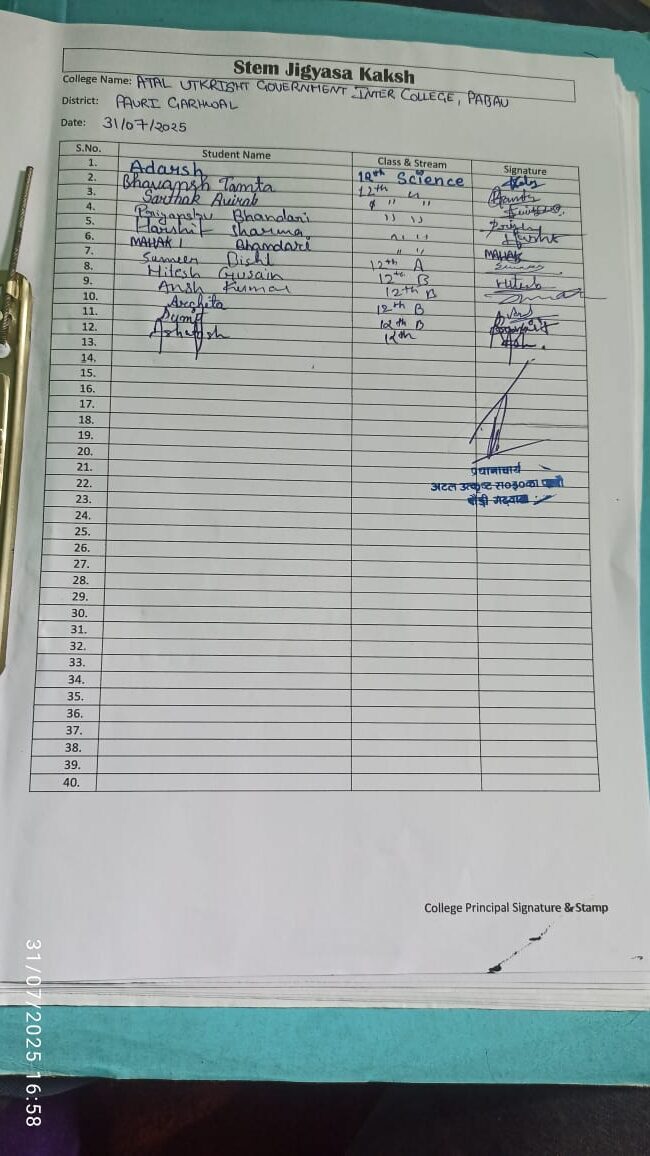 Stem Jigyasa Kaksh
College Name: ATAL UTKRISHT GOVERNMENT INTER COLLEGE, PABAU
District: PAURI GARHWAL
Date: 31/07/2025
S.No. Student Name Class & Stream Signature
1. Adarsh 12th Science
2. Bhavansh Tamta 12th "
3. Sarthak " "
4. Priyanshu Bhandari " "
5. Harshit Sharma " "
6. MAHAK Bhandari " " MAHAK
7. Sameer Bisht 12th A
8. Hitesh Gusain 12th B Hitesh
9. Ansh Kumar 12th B
10. Archita 12th B
11. Sumit 12th B
12. 12th
13.
14.
15.
16.
17.
18.
19.
20.
21.
22.
23.
24.
25.
26.
27.
28.
29.
30.
31.
32.
33.
34.
35.
36.
37.
38.
39.
40.
प्रधानाचार्य
अटल उत्कृष्ट रा०इ०का
पौड़ी गढ़वाल
College Principal Signature & Stamp
31/07/2025 16:58